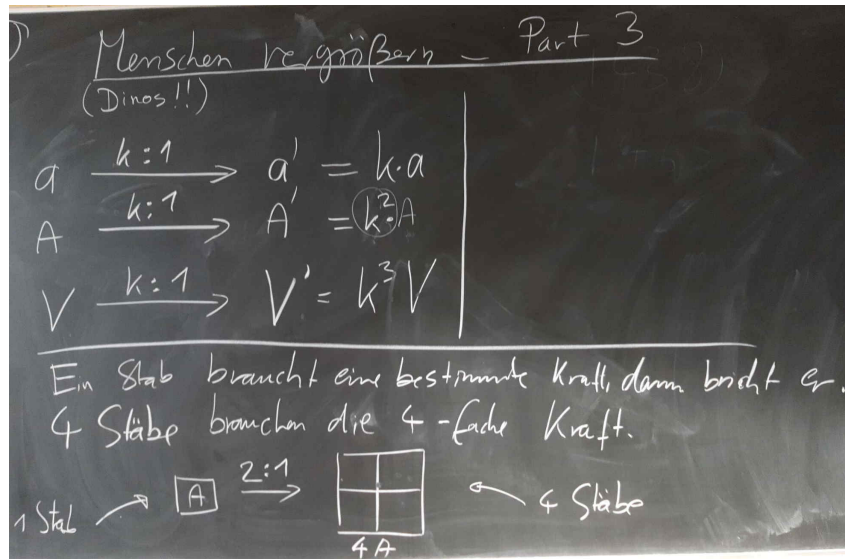 Menschen vergrößern – Part 3
(Dinos!!)
a k:1 → a' = k·a
A k:1 → A' = k²·A
V k:1 → V' = k³ V
Ein Stab braucht eine bestimmte Kraft, dann bricht er.
4 Stäbe brauchen die 4-fache Kraft.
1 Stab → A 2:1 → ← 4 Stäbe
4 A